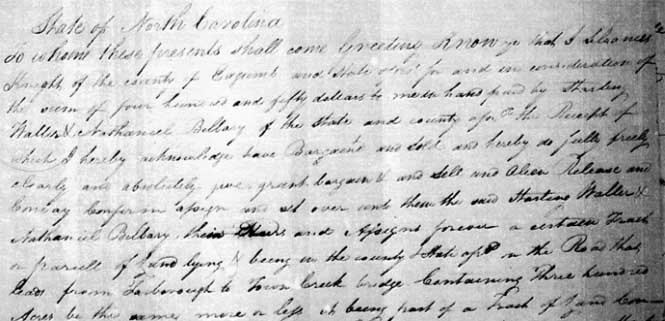 State of North Carolina
To whom these presents shall come Greeting Know ye that I
Knight of the county of Edgcomb and State afors^d for and in consideration of
the sum of four hundred and fifty dollars to me in hand paid by Starling
Waller & Nathaniel Bellary of the State and county afor^sd the Receipt of
which I hereby acknowledge have Bargain^d and Sold and hereby do fully freely
clearly and absolutely give grant bargain & and Sell and Alien Release and
Convay Confirm asign and set over unto them the said Starling Waller &
Nathaniel Bellary their Heirs and Assigns forever a certain Track
or parsell of Land lying & being in the county & State afs^d on the Road that
leads from Tarborough to Town Creek bridge Containing Three hundred
Acres be the same more or less it being part of a Track of Land